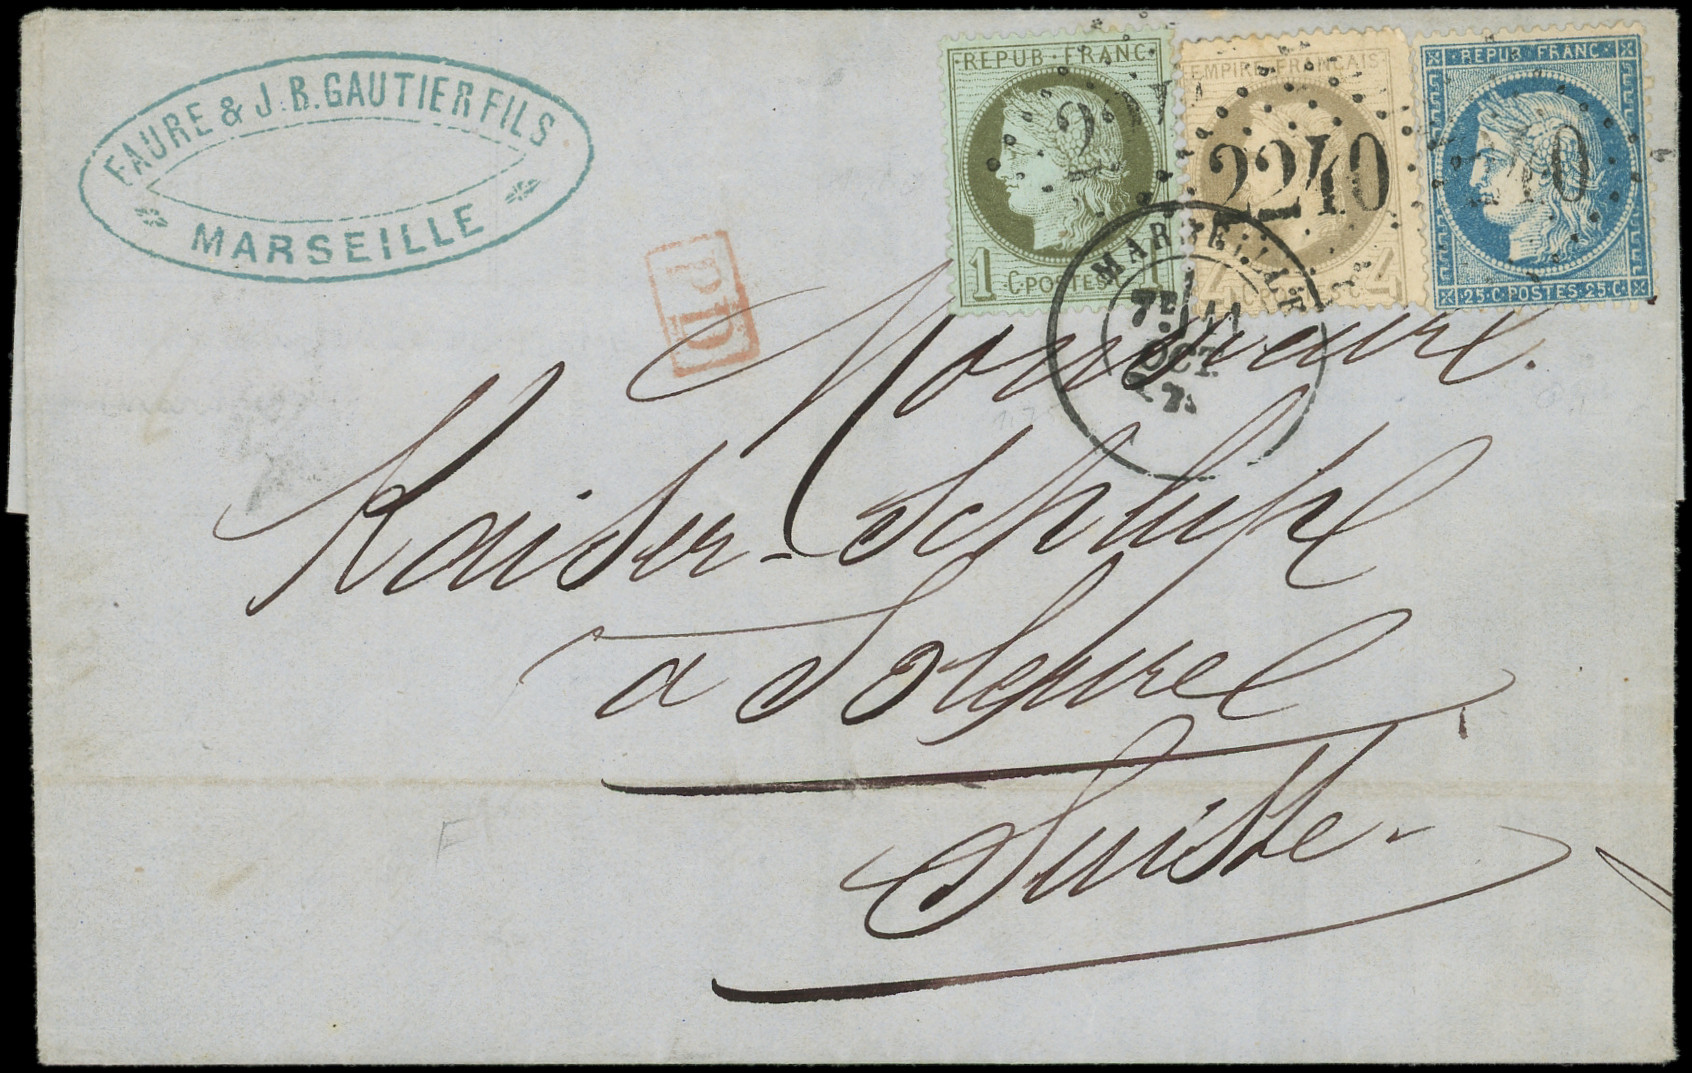 FAURE & J.B. GAUTIER FILS
MARSEILLE
PD
REPUB. FRANC.
1 C. POSTES 1
EMPIRE FRANÇAIS
4 4
REPUB. FRANC.
25·C·POSTES·25·C·
2240
240
MARSEILLE
7E
OCT.
Monsieur
Kaiser-Schlupf
a Soleure
Suisse